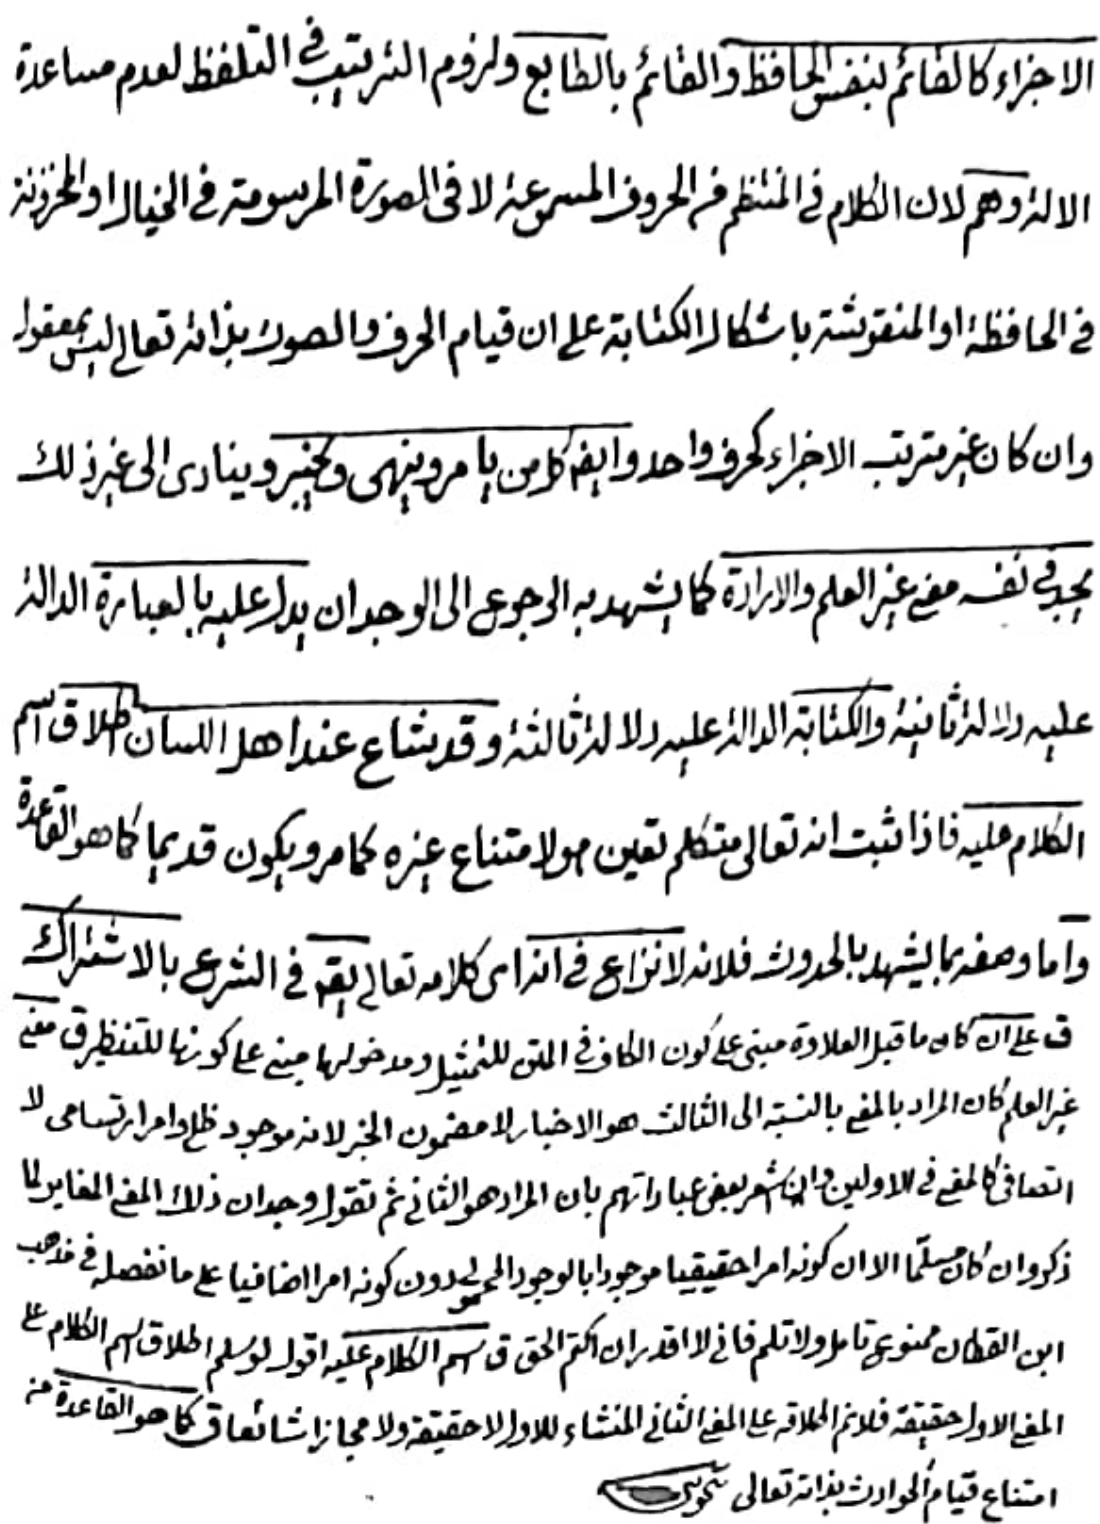 الاجزاء كالقائم بنفس الحافظ والقائم بالطابع ولزوم الترتيب في التلفظ لعدم مساعدة
الالة وهم لان الكلام في المنتظم من الحروف المسموعة لا في الصورة المرسومة في الخيال او المخزونة
في الحافظة او المنقوشة باشكال الكتابة على ان قيام الحرف والصوت بذاته تعالى ليس بمعقول
وان كان غير مترتب الاجزاء كحرف واحد وايضا كل من يامر وينهى ويخبر وينادى الى غير ذلك
يجد في نفسه معنى غير العلم والارادة كما يشهد به الرجوع الى الوجدان يدل عليه بالعبارة الدالة
عليه دلالة ثانية والكتابة الدالة عليه دلالة ثالثة وقد شاع عند اهل اللسان اطلاق اسم
الكلام عليه فاذا ثبت انه تعالى متكلم تعين هو لامتناع غيره كما مر ويكون قديما كما هو القاعدة
واما وصفه بما يشهد بالحدوث فلانه لا نزاع في انه اى كلامه تعالى يقع في الشرع بالاشتراك
ق على ان كان ما قبل العلاوة مبنى على كون الكاف في المتن للتمثيل ومدخولها مبنى على كونها للتنظير ق معنى
غير العلم كان المراد بالمعنى بالنسبة الى الثالث هو الاخبار لا مضمون الخبر لانه موجود
كالمعنى في الاولين وان اشعر بعض عباراتهم بان المراد هو الثاني ثم نقول وجدان ذلك المعنى المغاير لما
ذكر وان كان مسلّما الا ان كونه امرا حقيقيا موجودا بالوجود المحمولي دون كونه امرا اضافيا على ما نفصله في مذهب
ابن القطان ممنوع تامل ولا تلم فاني لا اقدر ان اكتم الحق ق اسم الكلام عليه اقول لو سلم اطلاق اسم الكلام على
المعنى الاول حقيقة فلا نم اطلاقه على المعنى الثاني المنشاء للاول لا حقيقة ولا مجازا شائعا ق كما هو القاعدة من
امتناع قيام الحوادث بذاته تعالى